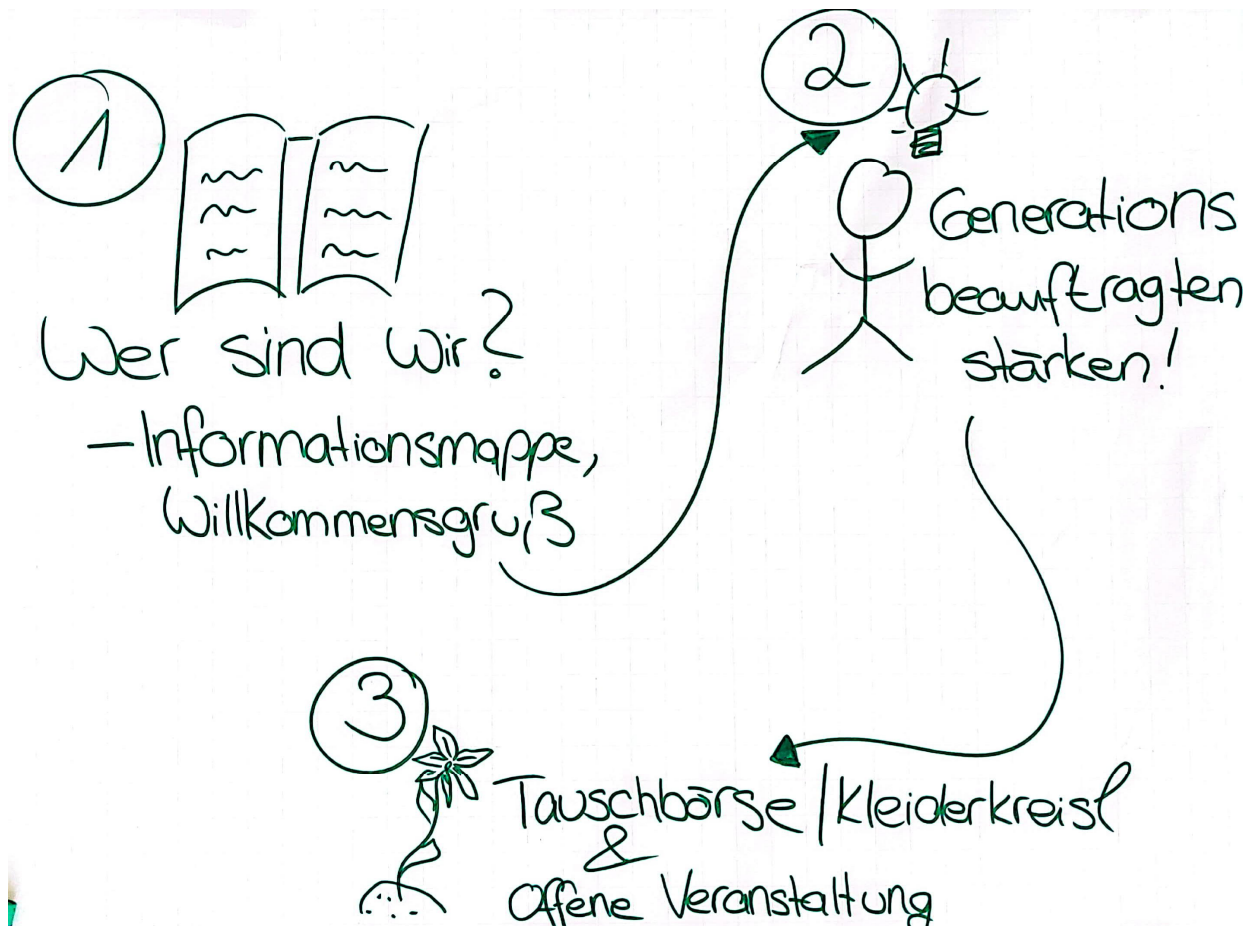 1
Wer sind Wir?
- Informationsmappe,
Willkommensgruß
2
Generations
beauftragten
stärken!
3
Tauschbörse/Kleiderkreisl
&
Offene Veranstaltung